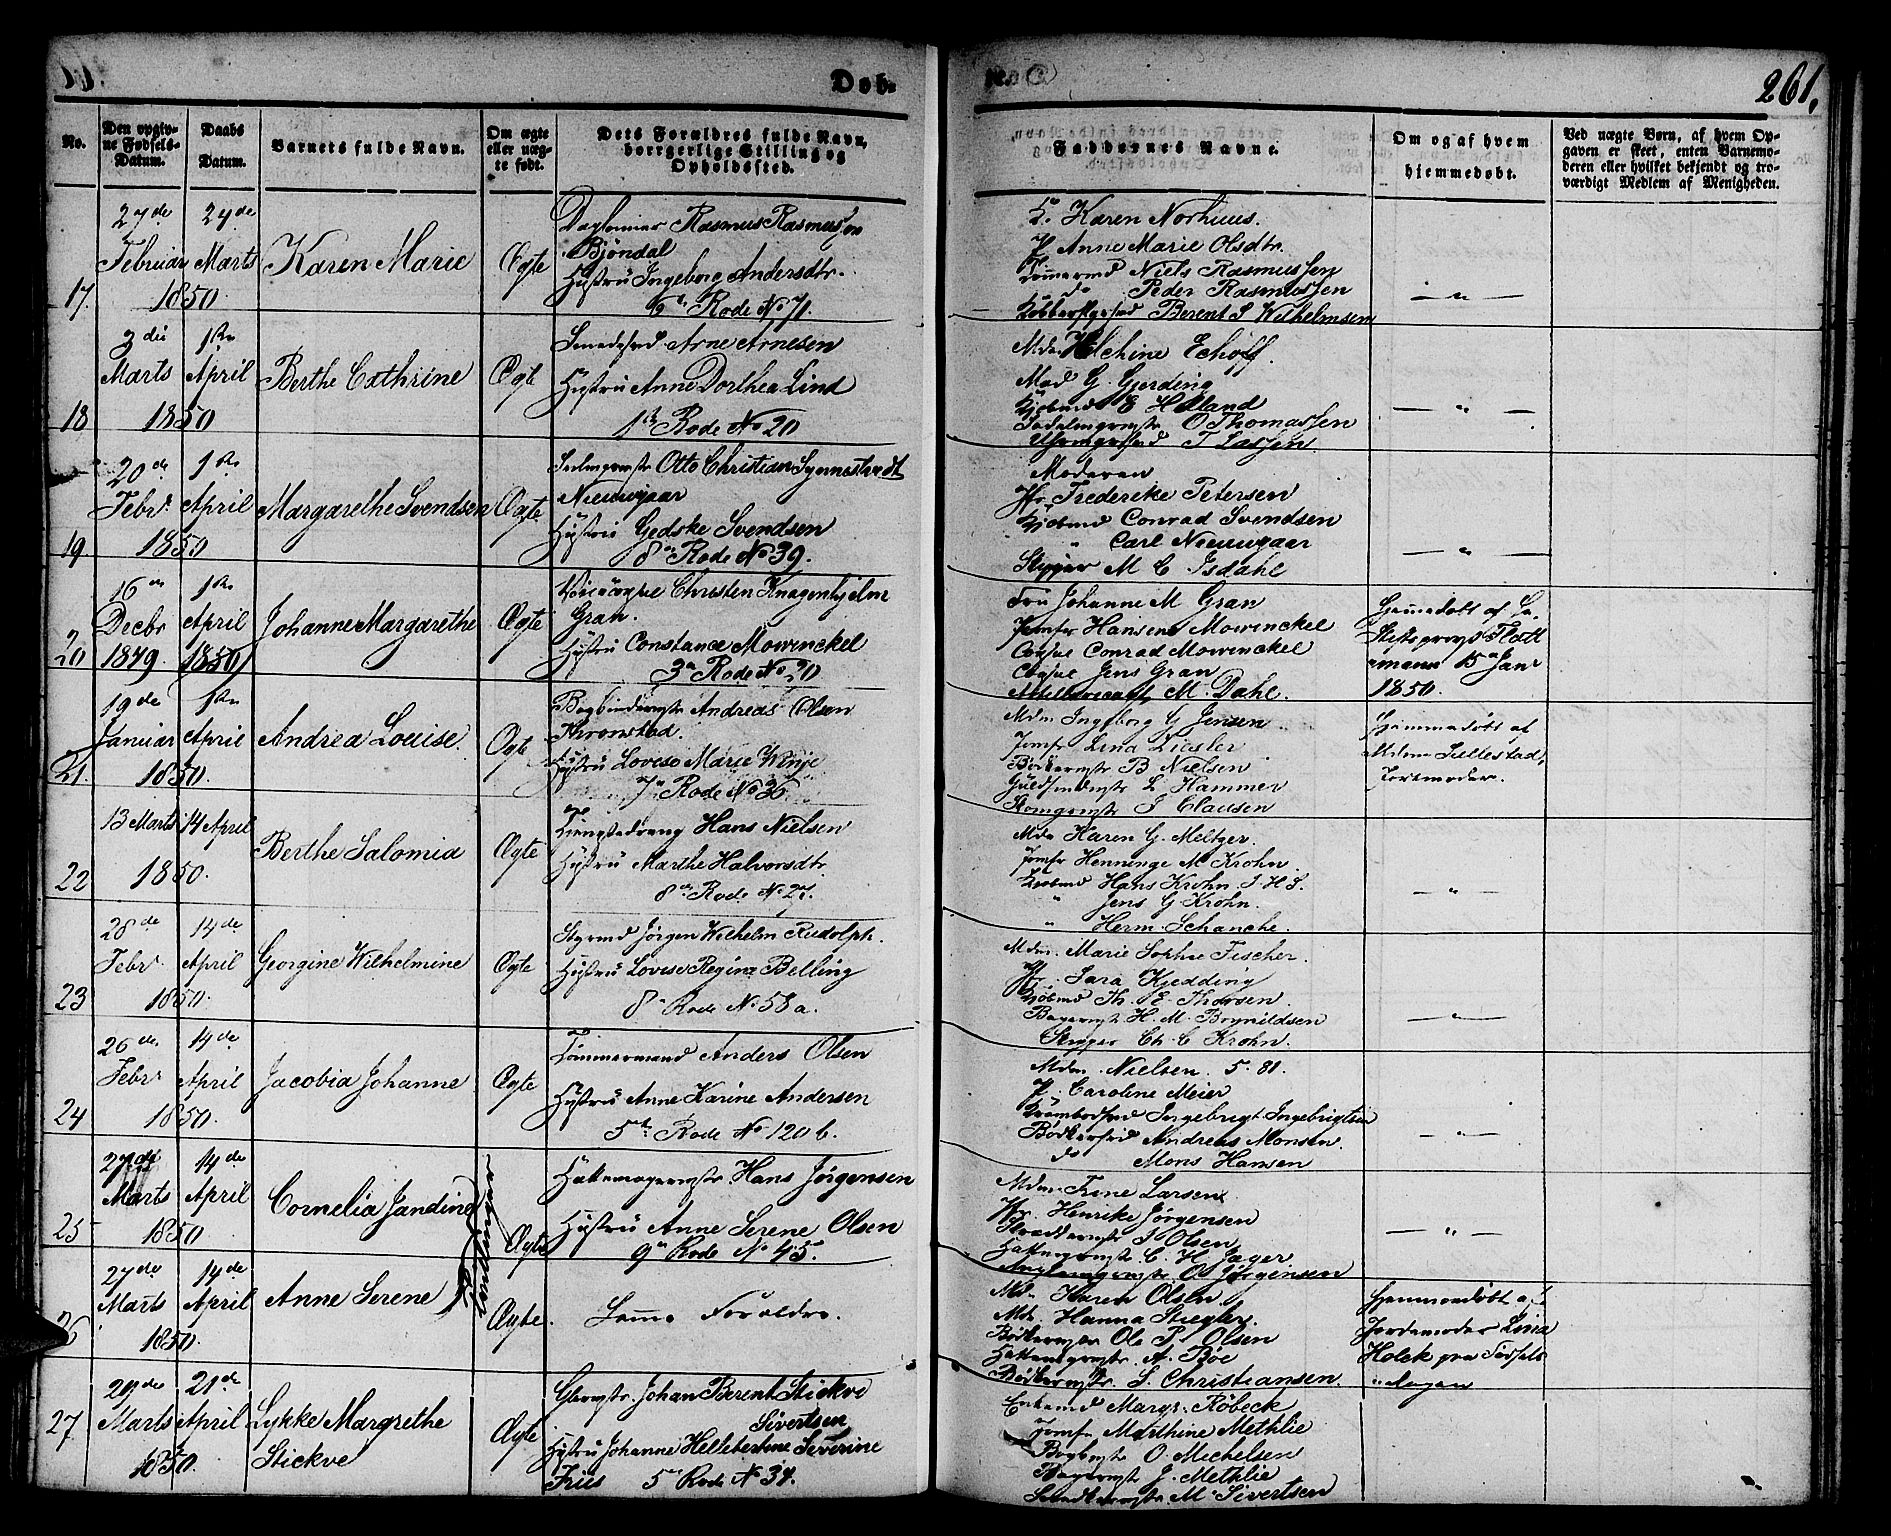 Døb-
261.
No.
Den opgiv-
ne Fødsels-
Datum.
Daabs
Datum.
Barnets fulde Navn.
Om ægte
eller uæg-
te født.
Dets Forældres fulde Navn,
borrgerlige Stilling og
Opholdssted.
Faddernes Navne.
Om og af hvem
hjemmedøbt.
Ved uægte Børn, af hvem Op-
gaven er skeet, enten Barnemo-
deren eller hvilket bekjendt og tro-
værdigt Medlem af Menigheden.
17.
27de
Februar
24de
Marts
1850.
Karen Marie
Ægte
Daglønner Rasmus Rasmussen
Bjöndal
Hustru Ingeborg Andersdtr.
6te Rode No 71.
Karen Norhuus.
P. Anne Marie Olsdtr.
Tømmermd Niels Rasmussen
do Peder Rasmussen
Berent S Wilhelmsen
— " —
18
3die
Marts
1ste
April
1850
Berthe Cathrine
Ægte
Smedesvd Arne Arnesen
Hustru Anne Dorthea Lind
1ste Rode No 20
Mdm Echoff.
Mad G. Gjerding
Kjøbmd E Helland
O Thomassen
T Lassen
— " —
19.
20de
Febr.
1ste
April
1850
Margarethe Svendsen
Ægte.
Otto Christian
Nieuwjaar
Hustru Gedske Svendsen
8de Rode No 39.
Moderen
Jfr. Frederike Petersen
Kjøbmd Conrad Svendsen
" Carl Nieuwjaar
Skipper M C Isdahl
— " —
20
16de
Decbr
1849.
1ste
April
1850
Johanne Margarethe
Ægte
Christen Knagenhjelm
Gran.
Hustru Constance Mowinckel
3die Rode No 20
Fru Johanne M Gran
Jomfr Hansene Mowinckel
Consul Conrad Mowinckel
Jens Gran
M. Dahl.
Hjemmedøbt af Hr
Stiftsprovst Flott
mann 15de Janr
1850.
21.
19de
Januar
1ste
April
1850.
Andrea Louise.
Ægte
Bogbindermstr Andreas Olsen
Kronstad.
Hustru Lovise Marie Winje
7de Rode No 36
Mdm Ingeborg G Jensen
Jomfr Lina Ziesler
Bødkermstr B Nielsen
Guldsmedmstr L Hammer
J Clausen
Hjemmedøbt af
Mdme Sellestad,
Jordmoder.
22
13 Marts
14 April
1850.
Berthe Salomia
Ægte
Hans Nielsen
Hustru Marthe Halvorsdtr.
8de Rode No 27.
Mdm Karen G. Meltzer.
Jomfr Henninge M Krohn.
Kjøbmd Hans Krohn J. H. S.
" Jens G Krohn.
" Herm Schancke.
— " —
23
28de
Febr.
14de
April
1850.
Georgine Wilhelmine
Ægte
Styrmd Jörgen Wilhelm Rudolph.
Hustru Lovise Regine Belling
8de Rode No 58 a.
Mdm. Marie Sophie Fischer.
Jfr. Sara Kjedding
Kjøbmd Th. E. Thorsen.
Bagermstr H. M. Brynildsen
Skipper Ch. C Krohn.
— " —
24
26de
Febr.
14de
April
1850.
Jacobia Johanne
Ægte
Tømmermand Anders Olsen
Hustru Anne Karine Andersen
5te Rode No 120 b.
Mdm. Nielsen. 5. 81.
P. Caroline Meier
Ingebrigt Ingebrigtsen
Bødkersvd Andreas Monsen
do Mons Hansen
— " —
25
27de
Marts
14de
April
1850
Cornelia Jandine
Tvillinger
Ægte
Hattemagermstr. Hans Jørgensen
Hustru Anne Serene Olsen
9de Rode No 45.
Mdm. Trine Larsen
Jfr. Henrike Jørgensen
Skræddermstr. J Olsen
Hattemgrmstr C. H. Jæger
O. Jørgensen
— " —
26
27de
Marts
14de
April
1850.
Anne Serene
Ægte.
Samme Forældre.
Md. Karen Olsen
Md. Hanna Stiegler
Bødkermstr Ole P. Olsen
Hattemgrmstr. A. Böe
Bödkermstr. S. Christiansen.
Hjemmedøbt af
Jordemoder Lina
Holck paa Fødsels
dagen
27
29de
Marts
21de
April
1850.
Lykke Margrethe
Stickve
Ægte
Glarmstr. Johan Berent Stickve
Sivertsen
Hustru Johanne Hellebertine Severine
Friis 5te Rode No 34.
Enkemd Margr. Röbeck
Jomfr Marthine Methlie
Bogbmstr O. Michelsen
Bagermstr J. Methlie
M Sivertsen